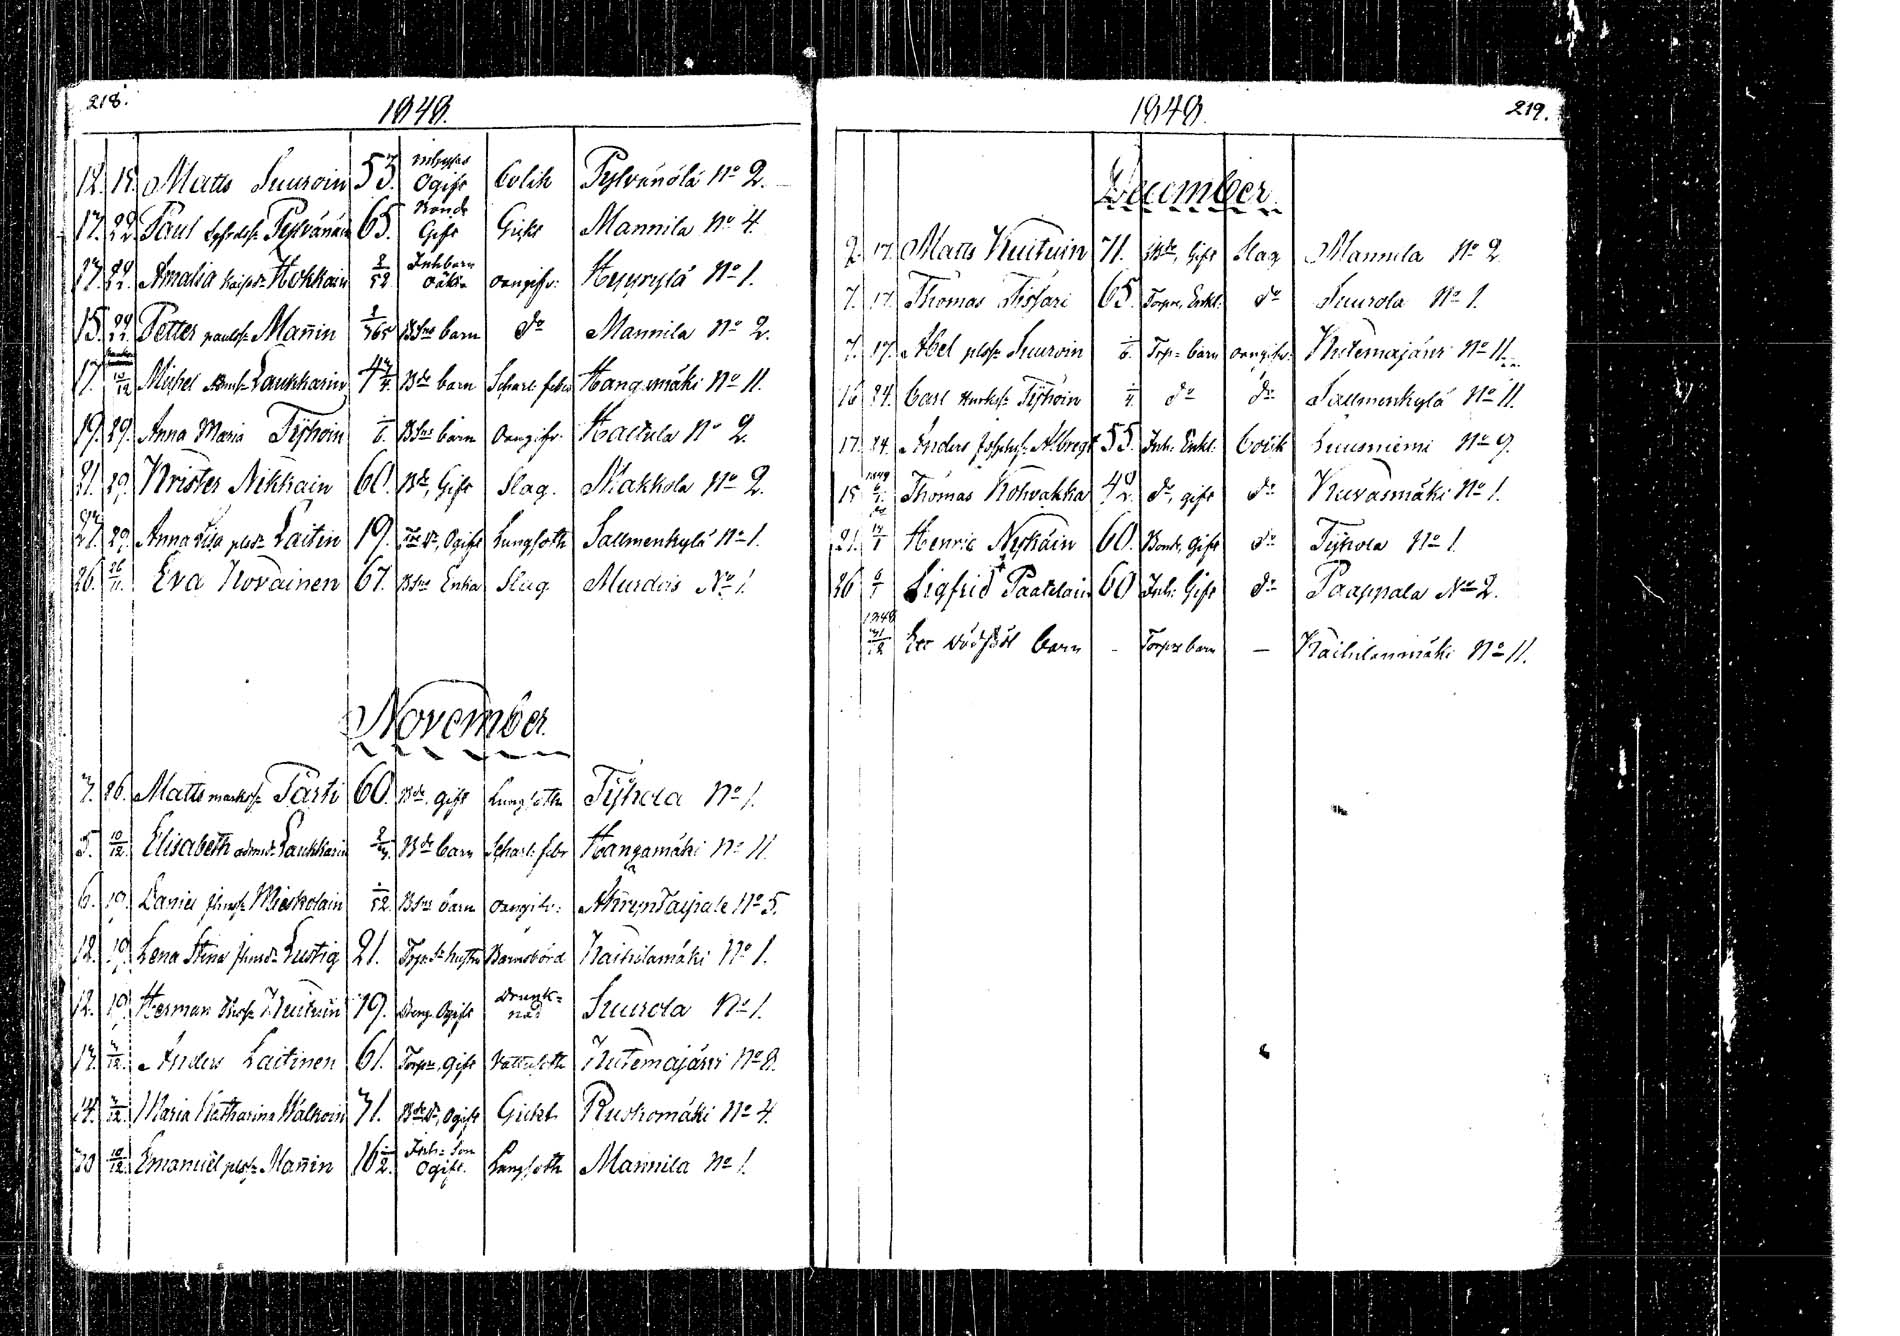 218.
1848.
12. 15. Matts Suuroin 53. Inhyses Ogift Colik Pylvänälä No 2.
17. 22. Paul Pylvänäin 65. Bonde Gift Gickt Mannila No 4.
17. 22. Amalia Hokkain 2/52 Inh. barn oäkta oangifv: Heyrylä No 1.
15. Petter paulss: Mañin 1/365 Bdns barn do Mannila No 2.
17. 10/12 Michel Admss: Laukkarin 4 3/4. Bde barn Scharl: feber Hangamäki No 11.
19. 29. Anna Maria Tÿhöin 1/6. Bdns barn Oangifv. Haetula No 2.
21. 29. Krister Nikkain 60. Bde, Gift Slag. Makkola No 2.
27. 29. Anna Lisa plsdr Laitin 19. Ogift Lungsoth Sallmenkylä No 1.
26. 26/11. Eva Hovainen 67. Bdns Enka Slag. Murdais No 1.
November.
3. 26. Matts markss: Pärti 60. Bde. gift Lungsoth Tÿhola No 1.
5. 10/12. Elisabeth admsdr Laukkarin Bde barn Scharl: febr Hangamäki No 11.
6. 19. Daniel Miekkolain 1/52. Bdns barn oangifv: Ahrendaipale No 5.
12. 19. Lena Stina Lustig 21. Torp. hustru Barnsbörd Kaihilamäki No 1.
12. 19. Herman Kuituin 19. Dreng. Ogift Drunk= nad Suurola No 1.
13. 3/12. Anders Laitinen 61. Torpr, gift Vattusoth Kutemajärvi No 8.
14. 3/12. Maria Katharina Välkoin 71. Ogift Gickt Ruokomäki No 4.
20 10/12. Emanuël plss: Mañin 16 1/2. Inh: Son Ogift. Lungsoth Mannila No 1.
1848.
219.
December.
2. 17. Matts Kuituin 71. Bde, Gift Slag Mannila No 2
7. 17. Thomas Tissari 65. Torpr, Enkl: do Suurola No 1.
7. 17. Abel plss: Suuroin 1/6. Torp= barn oangifv: Kutemajärvi No 11.
16 24. Carl Tÿhöin 1/4. do do Sallmenkylä No 11.
17. 24. Anders Albregt 55. Inh: Enkl: Colik Luusniemi No 9.
15 1849 6/1. Thomas Kohvakka do, gift do Kuvasmäki No 1.
21. 14/1 Henric Nykäin 60. Bonde, Gift do Tÿhola No 1.
26 6/1 Sigfrid Paatelain 60 Inh: Gift do Paappala No 2.
1848 31/12 Ett Dödfödt barn - Torprs barn - Kaihilanmäki No 11.